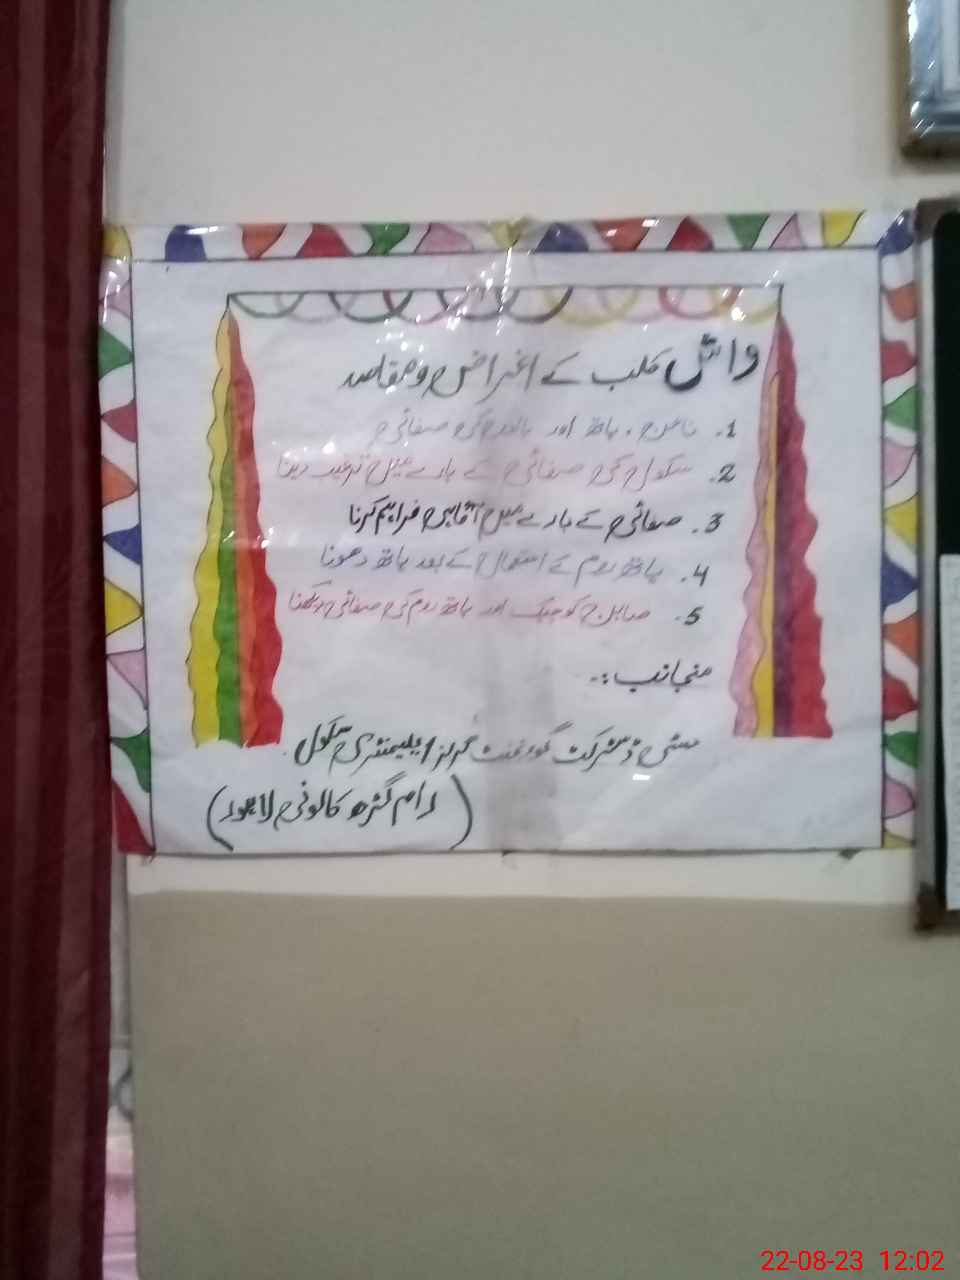 واٹل کلب کے اغراض و مقاصد
1. ناخن، ہاتھ اور دانتوں کی صفائی
2. سکول کی صفائی کے بارے میں ترغیب دینا
3. صفائی کے بارے میں آگاہی فراہم کرنا
4. باتھ روم کے استعمال کے بعد ہاتھ دھونا
5. صابن کو چیک اور باتھ روم کی صفائی رکھنا
منجانب :-
سٹی ڈسٹرکٹ گورنمنٹ گرلز ایلیمنٹری سکول
(رام گڑھ کالونی لاہور)
22-08-23 12:02